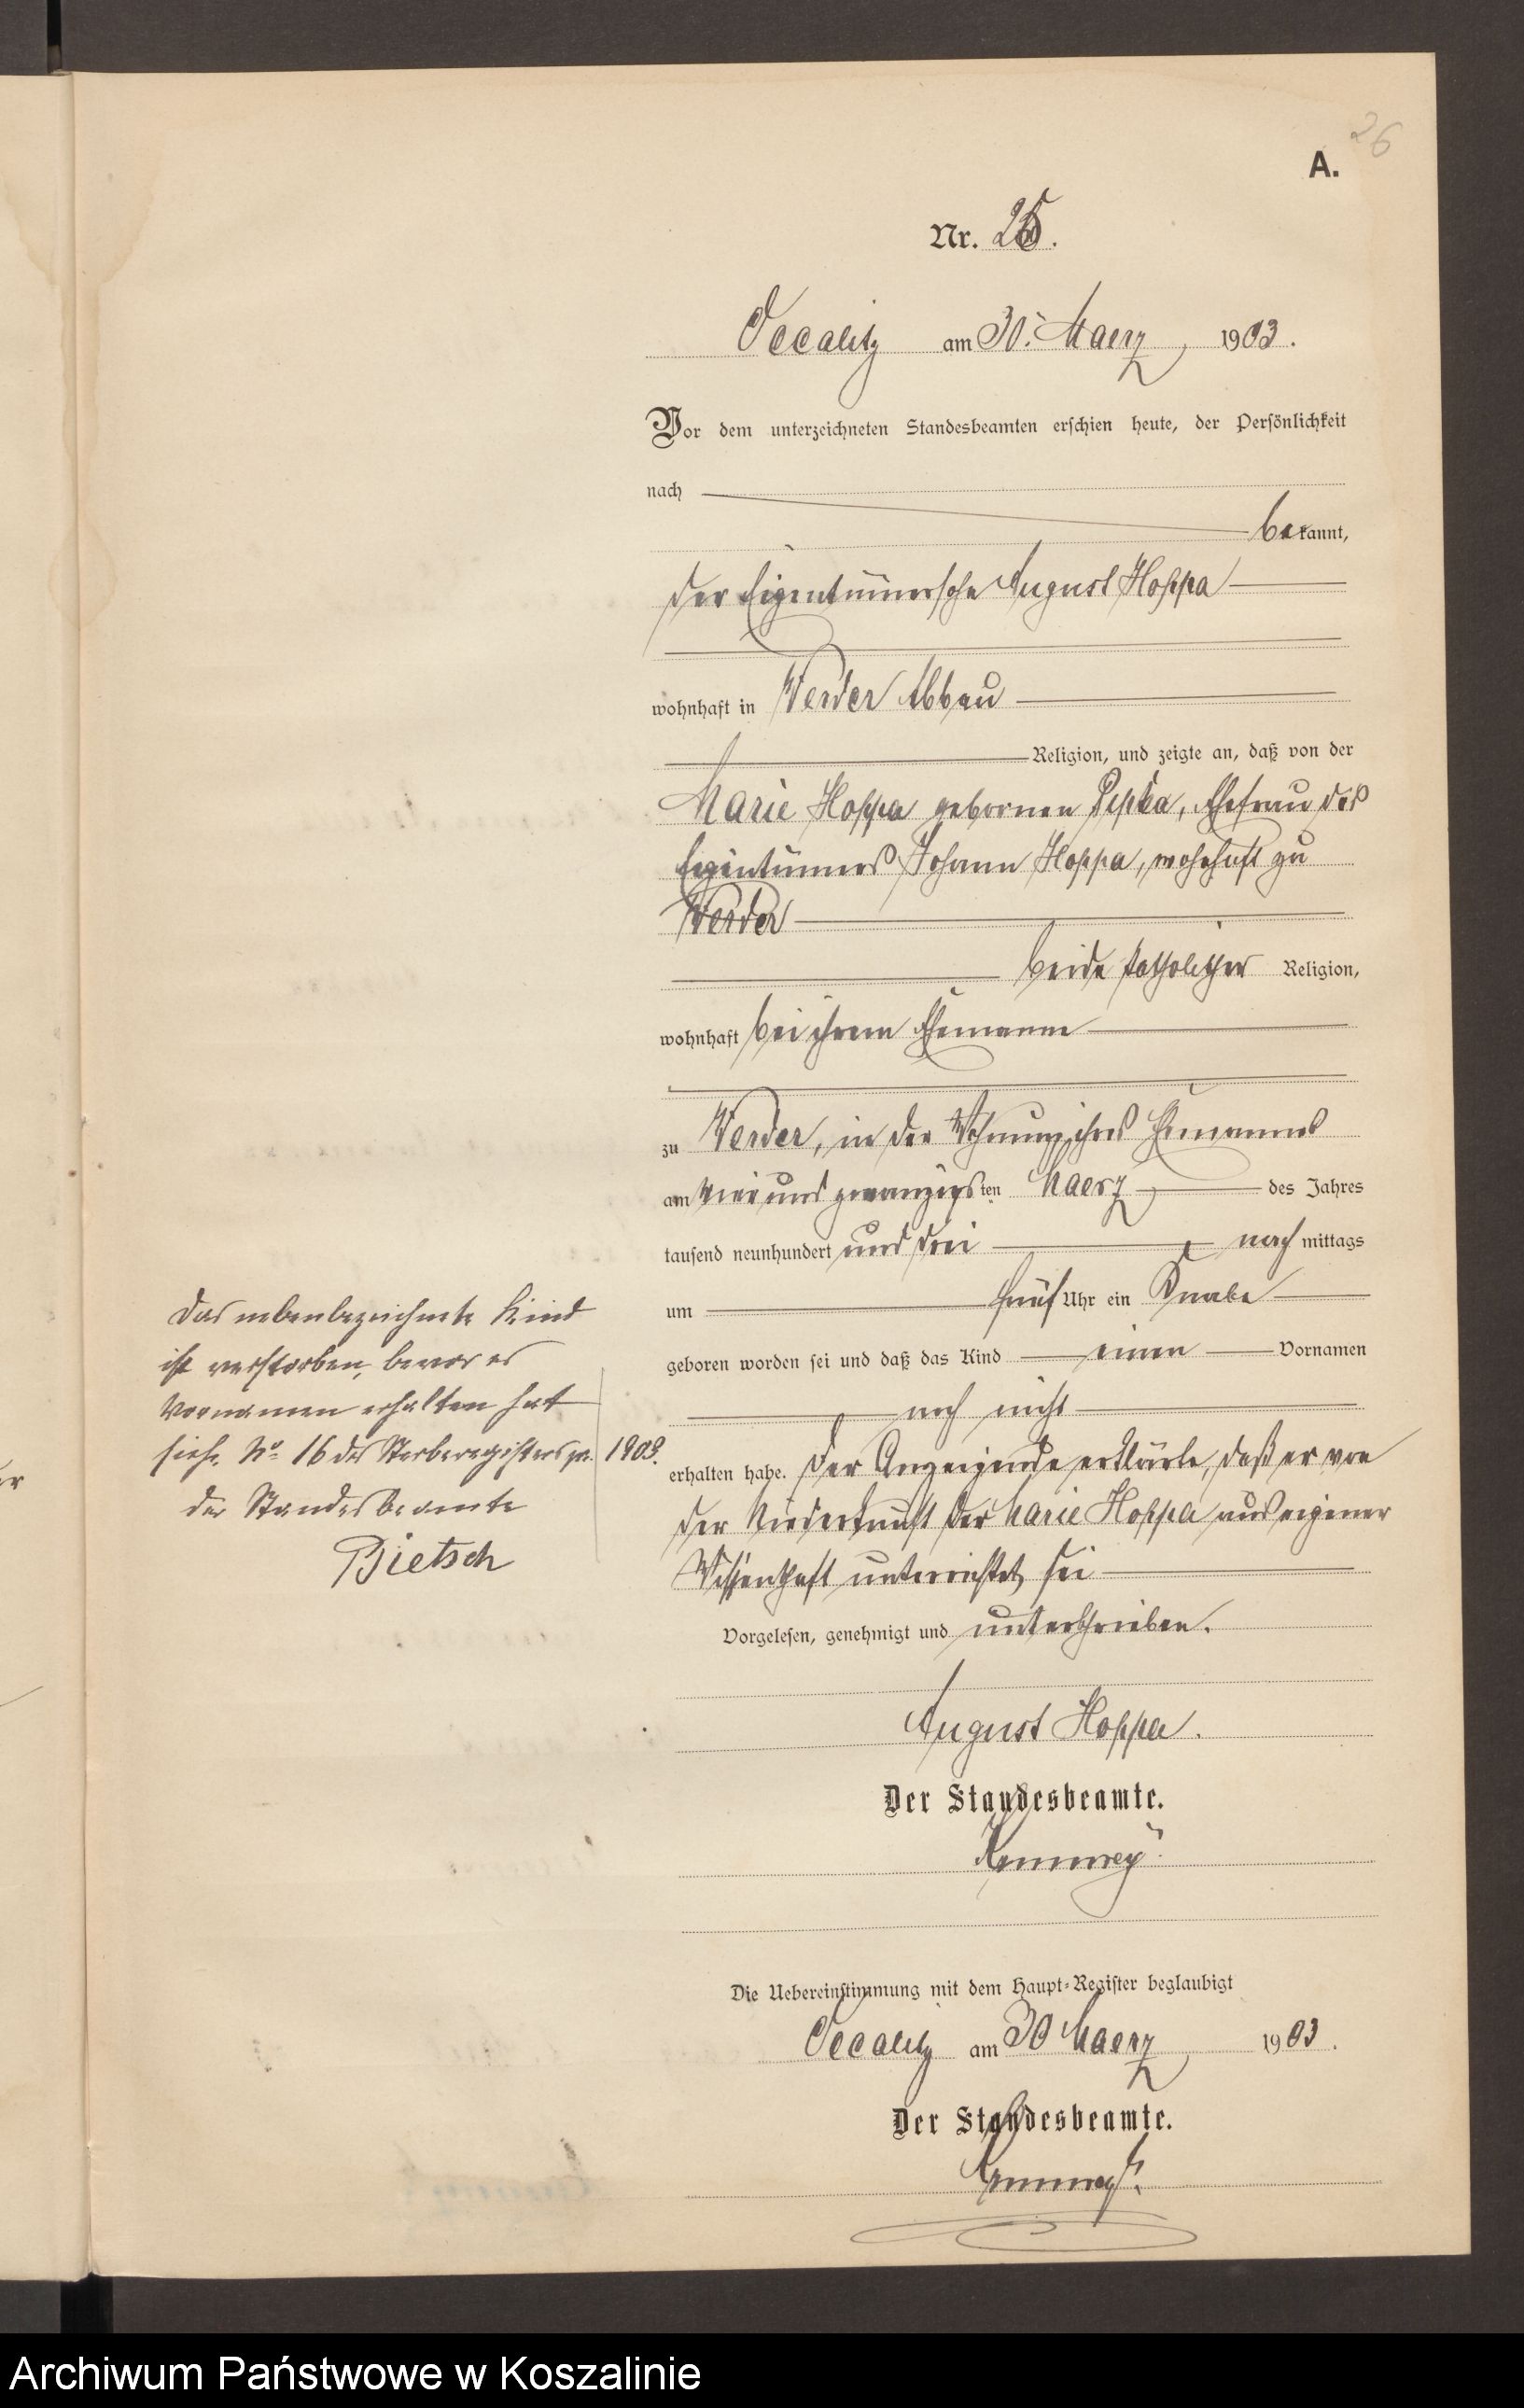 26
A.
Nr. 25.
Oecalitz am 30. Maerz 1903.
Vor dem unterzeichneten Standesbeamten erschien heute, der Persönlichkeit
nach
bekannt,
der Eigentümersohn August Hoppa
wohnhaft in Werder Abbau
Religion, und zeigte an, daß von der
Marie Hoppa gebornen Pepka, Ehefrau des
Eigentümers Johann Hoppa, wohnhaft zu
Werder
beide katholischer Religion,
wohnhaft bei ihrem Ehemanne
zu Werder, in der Wohnung ihres Ehemannes
am vier und zwanzigsten Maerz des Jahres
tausend neunhundert und drei nach mittags
um fünf Uhr ein Knabe
geboren worden sei und daß das Kind einen Vornamen
noch nicht
erhalten habe. Der Anzeigende erklärte, daß er von
der Niederkunft der Marie Hoppa aus eigener
Wissenschaft unterrichtet sei
Vorgelesen, genehmigt und unterschrieben.
August Hoppa.
Der Standesbeamte.
Die Uebereinstimmung mit dem Haupt-Register beglaubigt
Oecalitz am 30 Maerz 1903.
Der Standesbeamte.
Das nebenbezeichnete Kind
ist verstorben, bevor es
Vornamen erhalten hat
siehe No. 16 des Sterberegisters pr. 1903.
der Standesbeamte
Bietsch
Archiwum Państwowe w Koszalinie